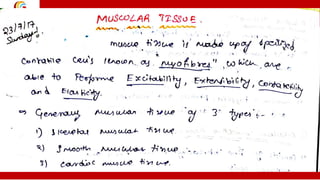 23/7/17,
Sunday
MUSCULAR TISSUE
muscle tissue is made up of specified
Contactile cells known as "myofibres", which are
able to Perform Excitability, Extensibility, Contactility
and Elasticity.
⇒ Generally muscular tissue of '3' types:-
1) skeletal muscular tissue
2) Smooth muscular tissue
3) cardiac muscle tissue.